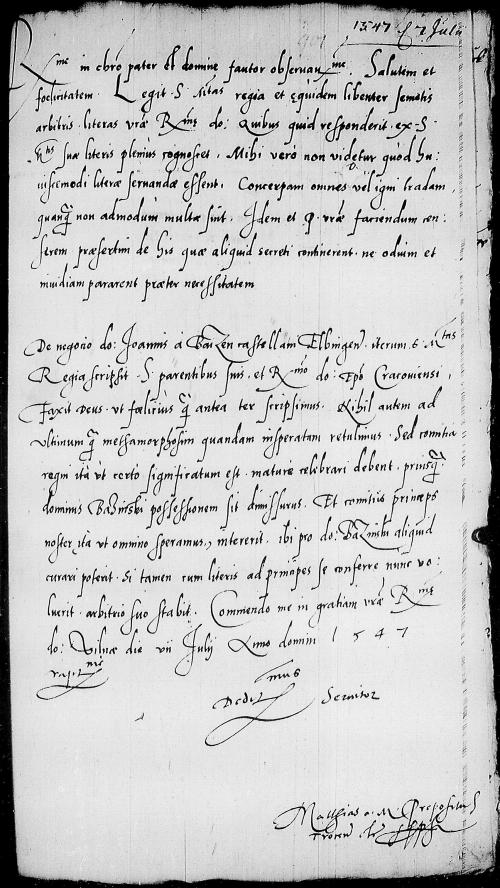 1547 7 Julii
R^me in chro pater et domine fautor observan^me. Salutem et
foelicitatem. Legit S. M^tas regia et equidem libenter semotis
arbitris literas vrae R^mae do: Quibus quid responderit ex S.
M^tis suae literis plenius cognoscet. Mihi vero non videtur quod hu:
iuscemodi literae servandae essent, Concerpam omnes vel igni tradam
quanq̃ non admodum multae sint. Idem et P. vrae faciendum cen:
serem praesertim de his quae aliquid secreti continerent. ne odium et
inuidiam pararent praeter necessitatem
De negocio do: Joannis à Baizen castellani Elbingen. iterum S. M^tas
Regia scripsit S. parentibus suis, et R^mo do: Epo Cracoviensi,
Faxit Deus, vt foelicius q̃ antea ter scripsimus. Nihil autem ad
vltimum q̃ methamorphosim quandam insperatam retulimus. Sed comitia
regni ita vt certo significatum est mature celebrari debent, priusq̃
dominus Bazinski possessionem sit dimissurus. Et comitiis princeps
noster, ita vt omnino speramus, intererit. ibi pro do: Bazinski aliquid
curari poterit. Si tamen cum literis ad principes se conferre nunc vo:
luerit. arbitrio suo stabit. Commendo me in gratiam vrae R^mae
do: Vilnae die vii Julij Anno domini 1547
rapt^me
Dedit^mus Servitor
Matthias a M. Prepositus
Trocen